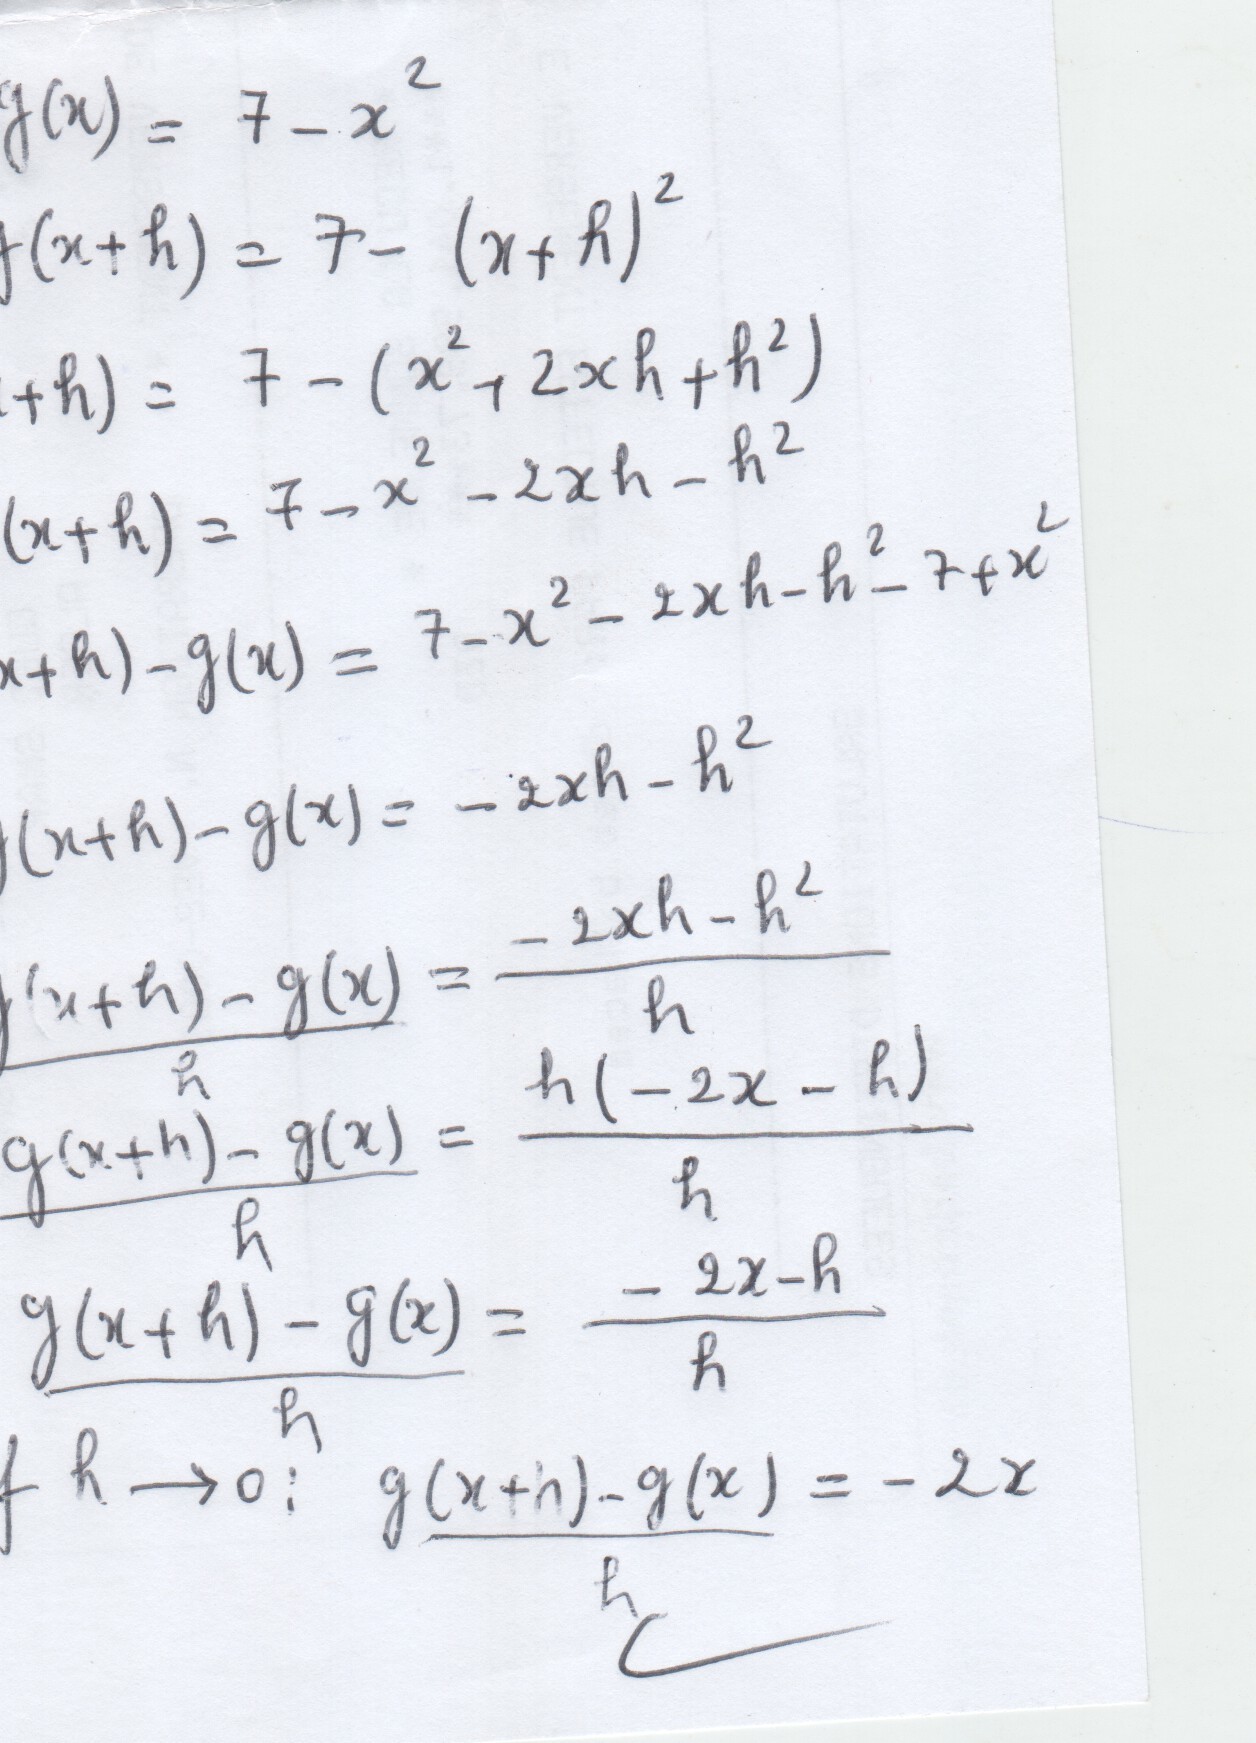 g(x) = 7 - x²
g(x+h) = 7 - (x+h)²
+h) = 7 - (x² + 2xh + h²)
(x+h) = 7 - x² - 2xh - h²
x+h) - g(x) = 7 - x² - 2xh - h² - 7 + x²
g(x+h) - g(x) = - 2xh - h²
g(x+h) - g(x) / h = - 2xh - h² / h
g(x+h) - g(x) / h = h(- 2x - h) / h
g(x+h) - g(x) / h = - 2x - h / h
f h → 0: g(x+h) - g(x) / h = - 2x